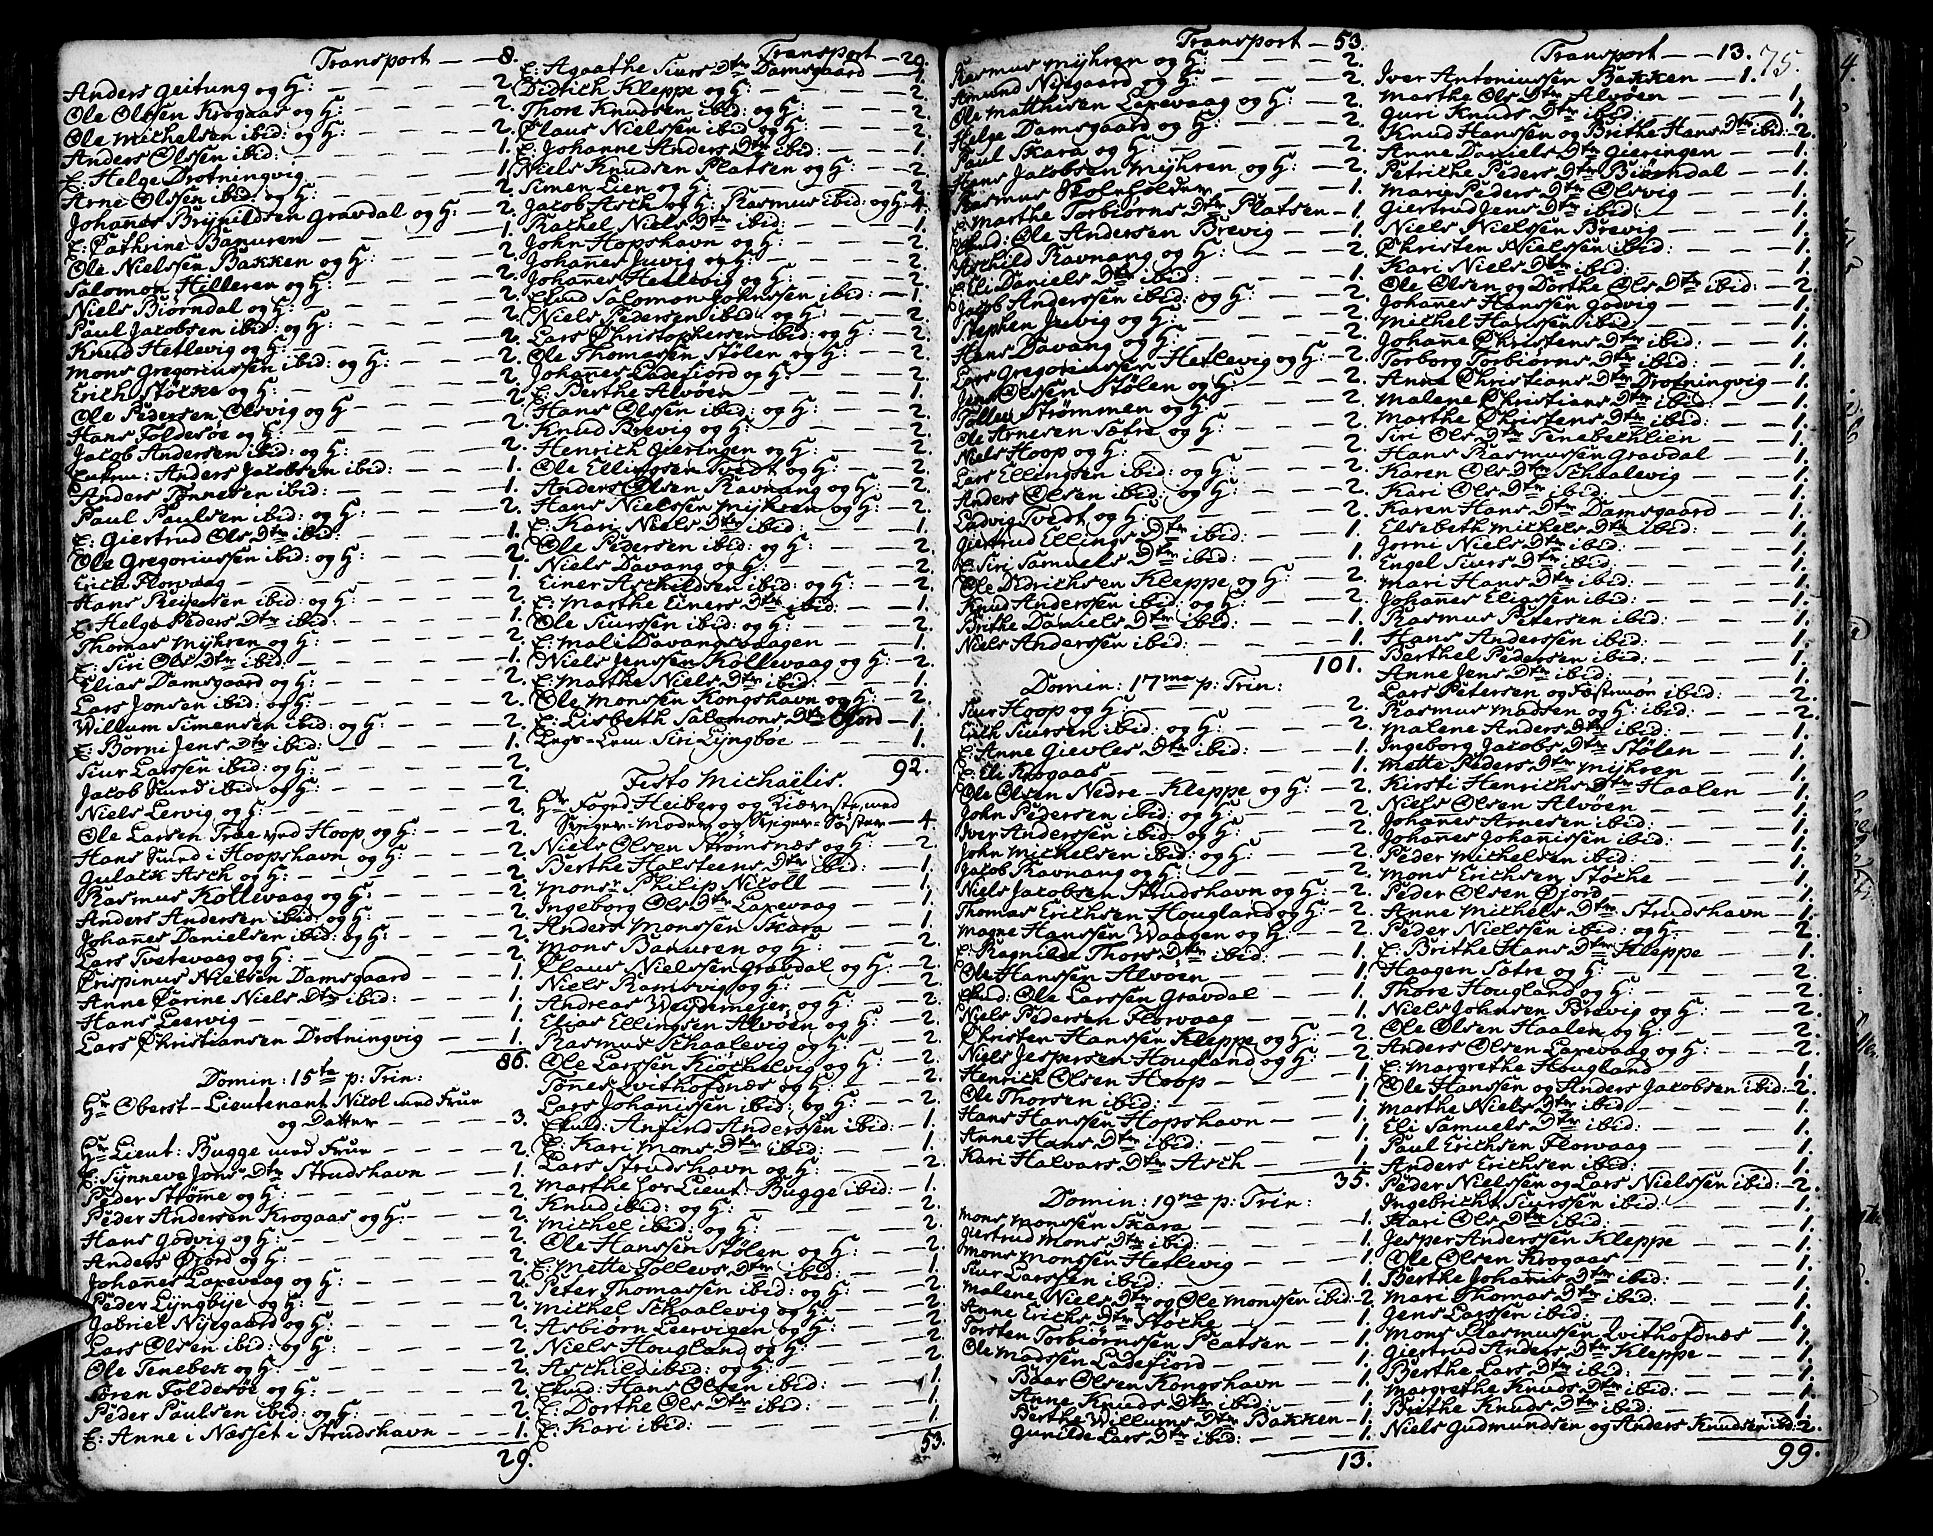 Transport — 8.
Anders Geitung og H: — 2.
Ole Olssen Krogaas og H: — 2.
Ole Michelsen ibid: og H: — 2.
Anders Olssen ibid: — 1.
E: Helge Drotningvig — 1.
Arne Olssen ibid: og H: — 2.
Johanes Brynildsen Gravdal og H: — 2.
E: Cathrine Banuren — 1.
Ole Nielssen Bakken og H: — 2.
Salomon Hilleren og H: — 2.
Niels Biørndal og H: — 2.
Paul Jacobsen ibid: og H: — 2.
Knud Hetlevig og H: — 2.
Mons Gregoriussen ibid: og H: — 2.
Erich Støcke og H: — 2.
Ole Pedersen Olsvig og H — 2.
Hans Foldesøe og H: — 2.
Jacob Andersen ibid: og H: — 2.
Enkm: Anders Jacobsen ibid: — 1.
Anders Tønnesen ibid: — 1.
Paul Paulsen ibid: og H: — 2.
E: Giertrud Ols Dtr ibid: — 1.
Ole Gregoriussen ibid: og H: — 2.
Erich Florvaag — 1.
Hans Reiersen ibid: og H: — 2.
E: Helge Peders Dtr ibid: — 1.
Thomas Myhren og H: — 2.
E: Siri Ols Dtr ibid: — 1.
Elias Damsgaard og H: — 2.
Lars Jonsen ibid: og H: — 2.
Willum Simensen ibid: og H: — 2.
E: Borni Jens Dtr ibid: — 1.
Siur Larssen ibid: og H: — 2.
Jacob Smed ibid: og H: — 2.
Niels Lervig og H: — 2.
Ole Larsen Træe ved Hoop og H: — 2.
Hans Smed i Hoopshavn og H: — 2.
Gulack Asch og H: — 2.
Rasmus Kollevaag og H: — 2.
Anders Andersen ibid: og H: — 2.
Johanes Danielsen ibid: og H: — 2.
Lars Tvetevaag og H: — 2.
Crispinus Nielsen Damsgaard — 1.
Anne Carine Niels Dtr ibid: — 1.
Hans Leervig — 1.
Lars Christiansen Drotningvig — 1.
86.
Domin: 15ta p: Trin:
Hr Oberst-Lieutenant Nicol med Frue
og Datter — 3.
Hr Lieut: Bugge med Frue — 2.
E: Synneve Jons Dtr Strudshavn — 1.
Peder Strøme og H: — 2.
Peder Andersen Krogaas og H: — 2.
Hans Godvig og H: — 2.
Anders Gjord og H: — 2.
Johanes Laxevaag og H: — 2.
Peder Lyngbye og H: — 2.
Gabriel Nygaard og H: — 2.
Lars Olsen ibid: og H: — 2.
Ole Tenebek og H: — 2.
Søren Foldesøe og H: — 2.
Peder Paulsen ibid: og H: — 2.
E: Anne i Næsset i Strudshavn — 1.
29.
Transport — 29.
E: Agaathe Siurs Dtr Damsgaard — 1.
Didrich Kleppe og H: — 2.
Thore Knudsen ibid: og H: — 2.
Claus Nielssen ibid: og H: — 2.
E: Johanne Anders Dtr ibid: — 1.
Niels Knudsen Platsen og H: — 2.
Simen Lien og H: — 2.
Jacob Asch og H: Rasmus ibid: og H: 4.
Rachel Niels Dtr ibid: — 1.
John Hopshavn og H: — 2.
Johanes Juvig og H: — 2.
Johanes Hetlevig og H: — 2.
Enkm Salomon Johnssen ibid: — 1.
Niels Pedersen ibid: og H: — 2.
Lars Christophersen ibid: og H: — 2.
Ole Thomesen Stølen og H: — 2.
Johanes Ladefiord og H: — 2.
E: Berthe Alvøen — 1.
Hans Olssen ibid: og H: — 2.
Knud Brevig og H: — 2.
Henrich Gieringen og H: — 2.
Ole Ellingsen Tvedt og H: — 2.
Anders Olsen Ravnang og H: — 2.
Hans Nielssen Myhren og H: — 2.
E: Kari Niels Dtr ibid: — 1.
Ole Pedersen ibid: og H: — 2.
Niels Davang og H: — 2.
Einer Aschildsen ibid: og H: — 2.
E: Marthe Einers Dtr ibid: — 1.
Ole Siurssen ibid: og H: — 2.
E: Mali Davangsvaagen — 1.
Niels Jenssen Kollevaag og H: — 2.
E: Marthe Niels Dtr ibid: — 1.
Ole Monssen Kongshavn og H: — 2.
E: Lisbeth Salomons Dtr Gjord — 1.
Legs-Lem Siri Lyngbøe — 1.
92.
Festo Michaëlis.
Hr Foged Heiberg og Kiæreste med
Sviger-Moder og Sviger-Søster — 4.
Niels Olsen Strømsnæs og H: — 2
Berthe Halsteens Dtr ibid: — 1.
Monsr Philip Nicoll — 1.
Ingeborg Ols Dtr Laxevaag — 1.
Anders Monssen Skara — 1.
Mons Banuren og H: — 2.
Claus Nielssen Gravdal og H: — 2.
Niels Ramsvig og H: — 2.
Andreas Weydemejer og H: — 2.
Elias Ellingsen Alvøen og H: — 2.
Rasmus Schaalevig og H: — 2.
Ole Larssen Kiøchelvig og H: — 2.
Tønes Qvithofdnæs og H: — 2.
Lars Johanissen ibid: og H: — 2.
Enkm: Anfind Anderssen ibid: — 1.
E: Kari Mons Dtr ibid: — 1.
Lars Strudshavn og H: — 2.
Marthe hos Lieut: Bugge ibid: — 1.
Knud ibid: og H: — 2.
Michel ibid: og H: — 2.
Ole Hanssen Stølen og H: — 2.
E: Mette Tollevs Dtr ibid: — 1.
Peter Thomassen ibid: og H: — 2.
Michel Schaalevig og H: — 2.
Asbiørn Leervigen og H: — 2.
Niels Hougland og H: — 2.
Aschild ibid: og H: — 2.
Enkm: Hans Olsen ibid: — 1.
E: Dorthe Ols Dtr ibid: — 1.
E: Kari ibid: — 1.
53.
Transport — 53.
Rasmus Myhren og H: — 2.
Amund Nygaard og H: — 2.
Ole Matthisen Laxevaag og H: — 2.
Helge Damsgaard og H: — 2.
Paul Skara og H: — 2.
Hans Jacobsen Myhren og H: — 2.
Rasmus Skolholder — 1.
E: Marthe Torbiørns Dtr Platsen — 1.
Enkm: Ole Andersen Brevig — 1.
Aschild Ravnang og H: — 2.
E: Eli Daniels Dtr ibid: — 1.
Jacob Anderssen ibid: og H: — 2.
Stephen Juvig og H: — 2.
Hans Davang og H: — 2.
Lars Gregoriussen Hetlevig og H: — 2.
Jens Olssen Stølen og H: — 2.
Tollev Strømmen og H: — 2.
Ole Arnesen Sætre og H: — 2.
Niels Hoop og H: — 2.
Lars Ellingsen ibid: og H: — 2.
Anders Olsen ibid: og H: — 2.
Ladvig Tvedt og H: — 2.
Giertrud Ellings Dtr ibid: — 1.
E: Siri Samuels Dtr ibid: — 1.
Ole Didrichsen Kleppe og H: — 2.
Knud Anderssen ibid: og H: — 2.
Brithe Daniels Dtr ibid: — 1.
Niels Anderssen ibid: — 1.
101.
Domin: 17ma p: Trin:
Siur Hoop og H: — 2.
Erich Siursen ibid: og H: — 2.
E: Anne Gievles Dtr ibid: — 1.
E: Eli Krogaas — 1.
Ole Olsen Nedre-Kleppe og H: — 2.
John Pedersen ibid: og H: — 2.
Iver Anderssen ibid: og H: — 2.
John Michelsen ibid: og H: — 2.
Jacob Ravnang og H: — 2.
Niels Jacobsen Strudshavn og H: — 2.
Thomas Erichsen Hougland og H: — 2.
Magne Hanssen Waagen og H: — 2.
E: Ragnilde Thors Dtr ibid: — 1.
Ole Hanssen Alvøen — 1.
Enkm: Ole Larssen Gravdal — 1.
Niels Pedersen Florvaag — 1.
Christen Hanssen Kleppe og H: — 2.
Niels Jespersen Hougland og H: — 2.
Henrich Olsen Hoop — 1.
Ole Thorsen ibid: — 1.
Hans Hanssen Hopshavn — 1.
Anne Hans Dtr ibid: — 1.
Kari Halvars Dtr Asch — 1.
35.
Domin: 19na p: Trin:
Mons Monssen Skara — 1.
Giertrud Mons Dtr ibid: — 1.
Mons Monssen Hetlevig — 1.
Siur Larssen ibid: — 1.
Malene Niels Dtr og Ole Monssen ibid: — 2.
Anne Erichs Dtr Støcke — 1.
Torsten Torbiørnssen Platsen — 1.
Ole Madssen Ladefiord — 1.
Baar Olsen Kongshavn — 1.
Anne Knuds Dtr ibid: — 1.
Berthe Willums Dtr Bakken — 1.
Gunilde Lars Dtr ibid: — 1.
13.
Transport — 13. 75.
Iver Antoniussen Bakken — 1.
Marthe Ols Dtr Alvøen — 1.
Guri Knuds Dtr ibid: — 1.
Knud Hanssen og Brithe Hans Dtr ibid: 2.
Anne Daniels Dtr Gieringen — 1.
Petriche Peders Dtr Biørndal — 1.
Mari Peders Dtr Olsvig — 1.
Giertrud Jens Dtr ibid: — 1.
Niels Nielssen Brevig — 1.
Christen Nielssen ibid: — 1.
Kari Niels Dtr ibid: — 1.
Ole Olsen og Dorthe Ols Dtr ibid: — 2.
Johanes Hanssen Godvig — 1.
Michel Hanssen ibid: — 1.
Johane Christens Dtr ibid: — 1.
Torborg Torbiørns Dtr ibid: — 1.
Anne Christians Dtr Drotningvig — 1.
Malene Christians Dtr ibid: — 1.
Marthe Christens Dtr ibid: — 1.
Siri Ols Dtr Tenebechlien — 1.
Hans Rasmussen Gravdal — 1.
Karen Ols Dtr Schaalevig — 1.
Kari Ols Dtr ibid: — 1.
Karen Hans Dtr Damsgaard — 1.
Elsebeth Michels Dtr ibid: — 1.
Jorni Niels Dtr ibid: — 1.
Engel Siurs Dtr ibid: — 1.
Mari Hans Dtr ibid: — 1.
Johanes Eliassen ibid: — 1.
Rasmus Petersen ibid: — 1.
Hans Anderssen ibid: — 1.
Berthel Pedersen ibid: — 1.
Anne Jens Dtr ibid: — 1.
Lars Petersen og Fæstemøn ibid: — 2.
Rasmus Madsen og H: ibid: — 2.
Malene Anders Dtr ibid: — 1.
Ingeborg Jacobs Dtr Stølen — 1.
Mette Peders Dtr Myhren — 1.
Kirsti Henrichs Dtr Haalen — 1.
Niels Olsen Alvøen — 1.
Johanes Arnesen ibid: — 1.
Johanes Johanissen ibid: — 1.
Peder Michelsen ibid: — 1.
Mons Erichsen Støche — 1.
Peder Olsen Gjord — 1.
Anne Michels Dtr Strudshavn — 1.
Peder Nielssen ibid: — 2.
E: Brithe Hans Dtr Kleppe — 1.
Haagen Sætre og H: — 2.
Thore Hougland og H: — 2.
Niels Johnsen Brevig og H: — 2.
Ole Olsen Haalen og H: — 2.
Anders Olsen Laxevaag og H: — 2.
E: Margrethe Hougland — 1.
Ole Hanssen og Anders Jacobsen ibid: — 2.
Marthe Niels Dtr ibid: — 1.
Eli Samuels Dtr ibid: — 1.
Paul Erichsen Florvaag — 1.
Anders Erichsen ibid: — 1.
Peder Nielssen og Lars Nielssen ibid: — 2.
Ingebricht Siurssen ibid: — 1.
Kari Ols Dtr ibid: — 1.
Jesper Anderssen Kleppe — 1.
Ole Olsen Krogaas — 1.
Berthe Johanis Dtr ibid: — 1.
Mari Thomas Dtr ibid: — 1.
Jens Larssen ibid: — 1.
Mons Rasmussen Qvithofdnæs — 1.
Giertrud Anders Dtr Kleppe — 1.
Berthe Lars Dtr ibid: — 1.
Margrethe Knuds Dtr ibid: — 1.
Brithe Knuds Dtr ibid: — 1.
Niels Gudmundsen og Anders Knudsen ibid: 2.
99.